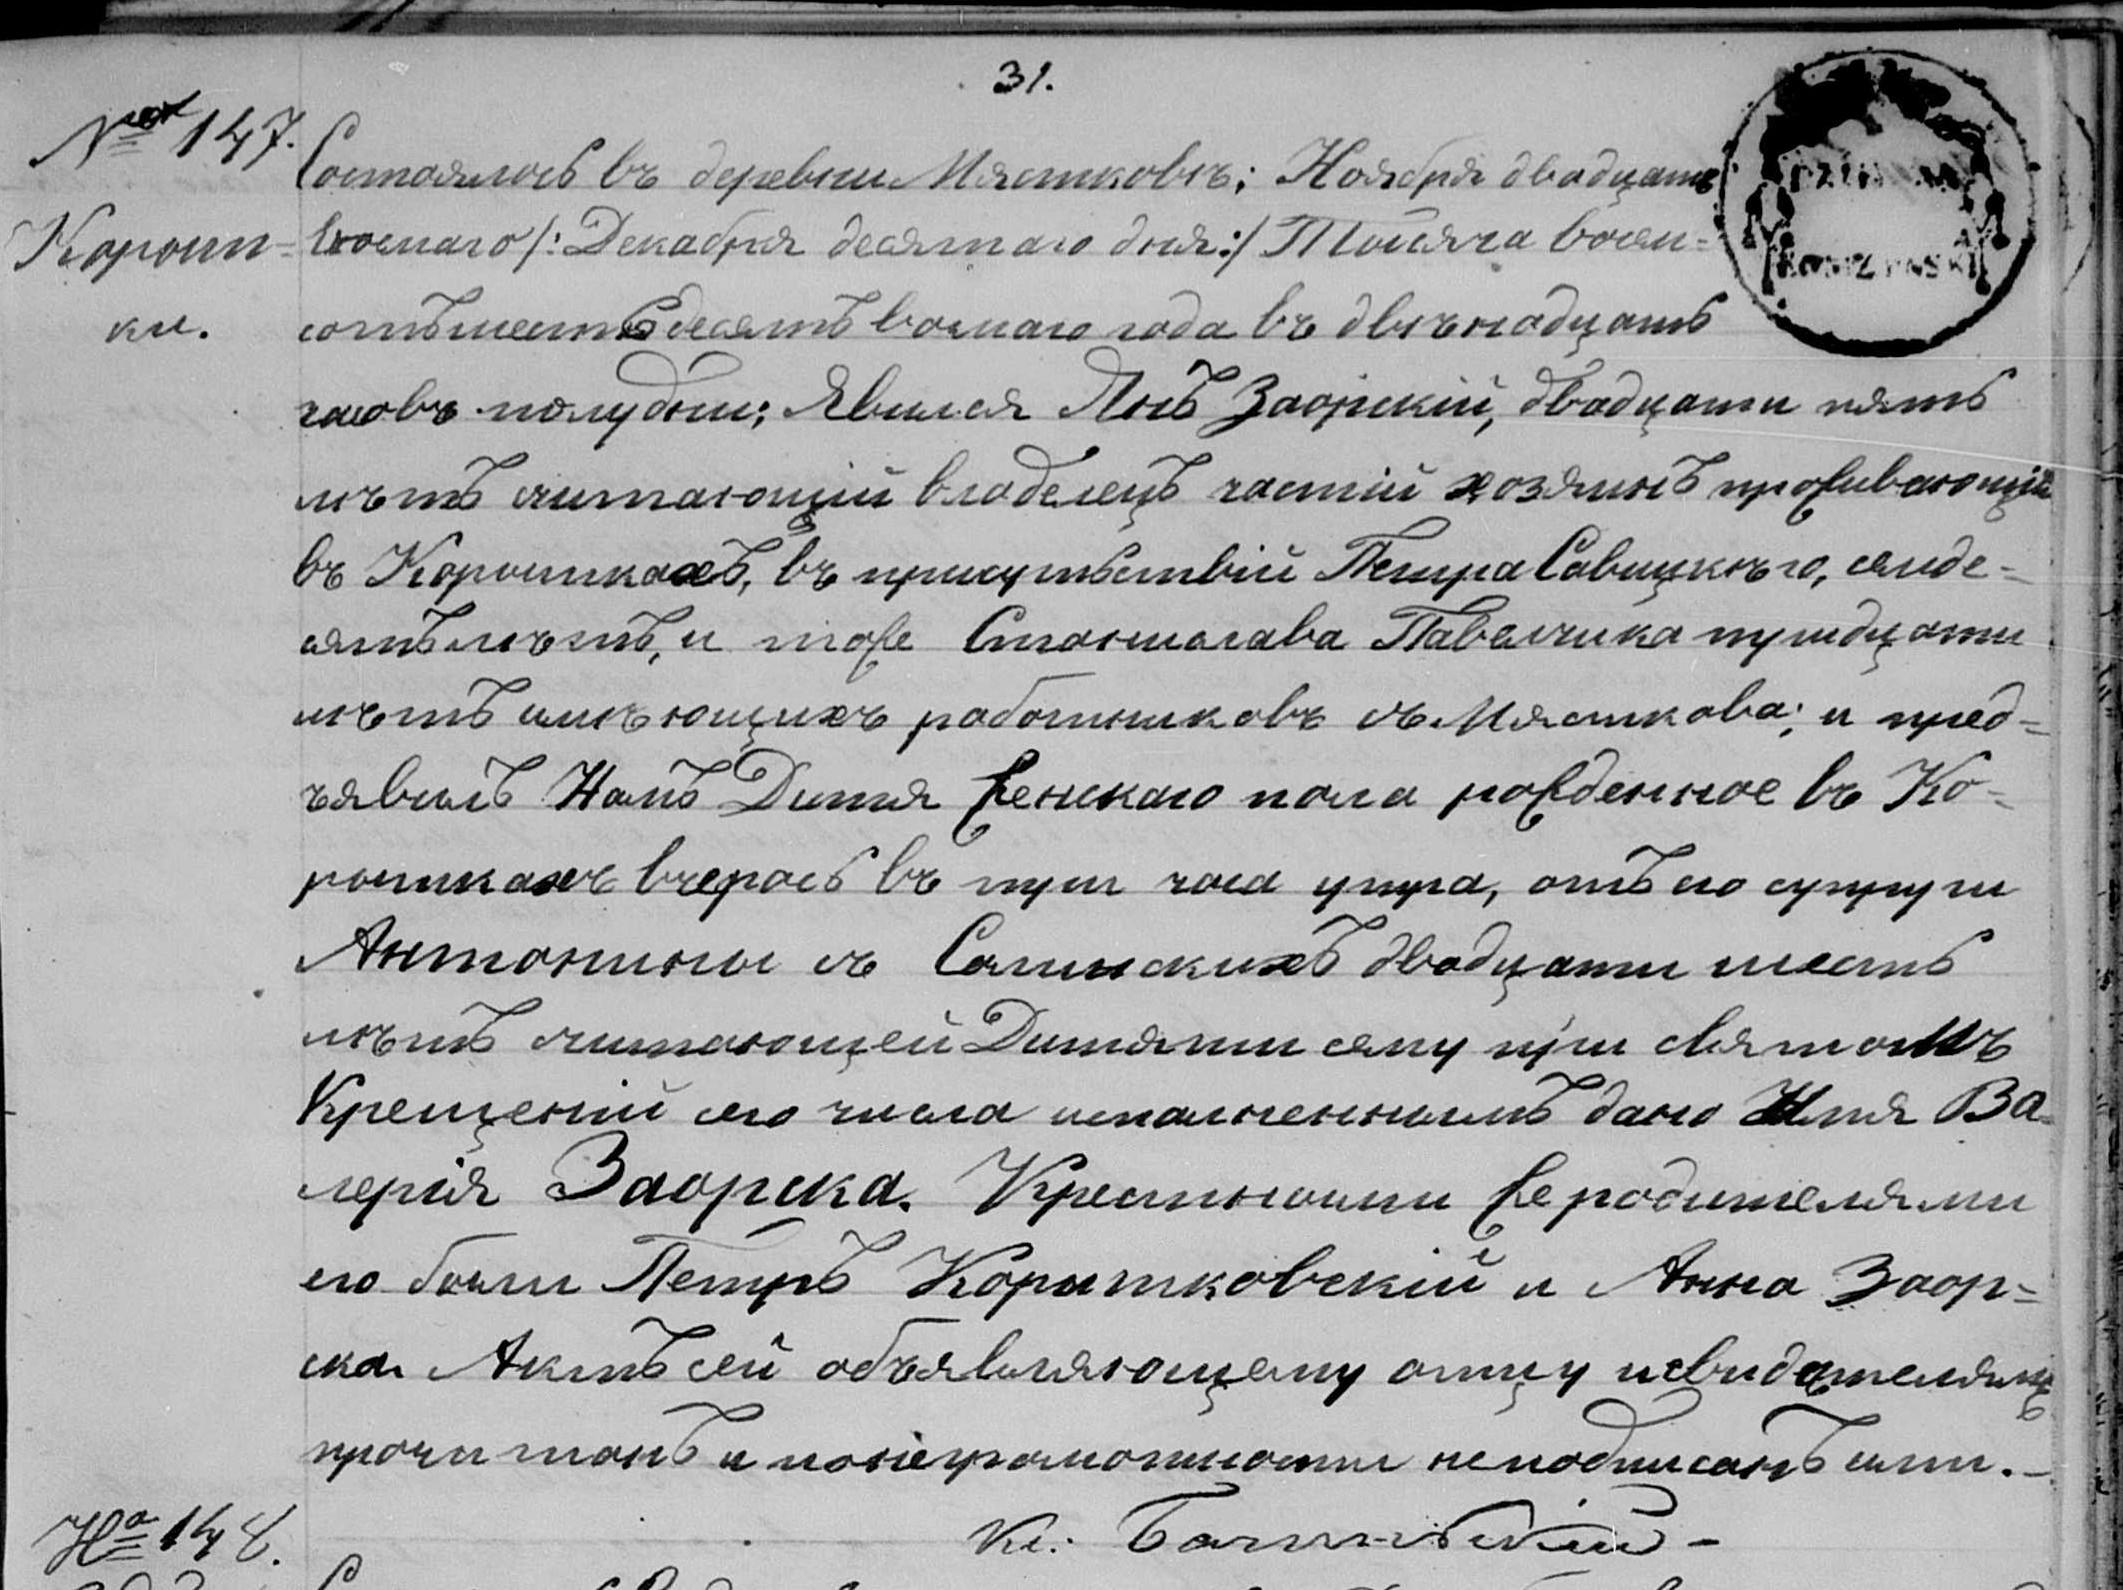 31.
№ 147.
Корошки.
Состоялось въ деревни Мястковѣ; Ноября двадцать
восмаго /: Декабря десятаго дня:/ Тысяча восем=
сотъ шестьдесятъ восмаго года въ двѣнадцать
часовъ полудни; Явился Янъ Заорскій, двадцати пять
лѣтъ считающій владелецъ частій хозяинъ проживающій
въ Корошкахъ, въ присутьствіи Петра Савицкѣго, семде=
сятъ лѣтъ, и тоже Станислава Павельчика тридцати
лѣтъ имѣющихъ работниковъ съ Мясткова; и пред=
ъявилъ Намъ Дитя женскаго пола рожденное въ Ко=
рошкахъ вчерась въ три часа утра, отъ его супруги
Антонины съ Салинскихъ двадцати шесть
лѣтъ считающей Дитяти сему при святомъ
Крещеніи сего числа исполненнымъ дано Имя Ва
лерія Заорска. Крестными же родителями
его были Петръ Корытковскій и Анна Заор=
ска Актъ сей объявляющему отцу и свидѣтелямъ
прочитанъ и по неграмотности неподписанъ ими.-
Кс:
№ 148.